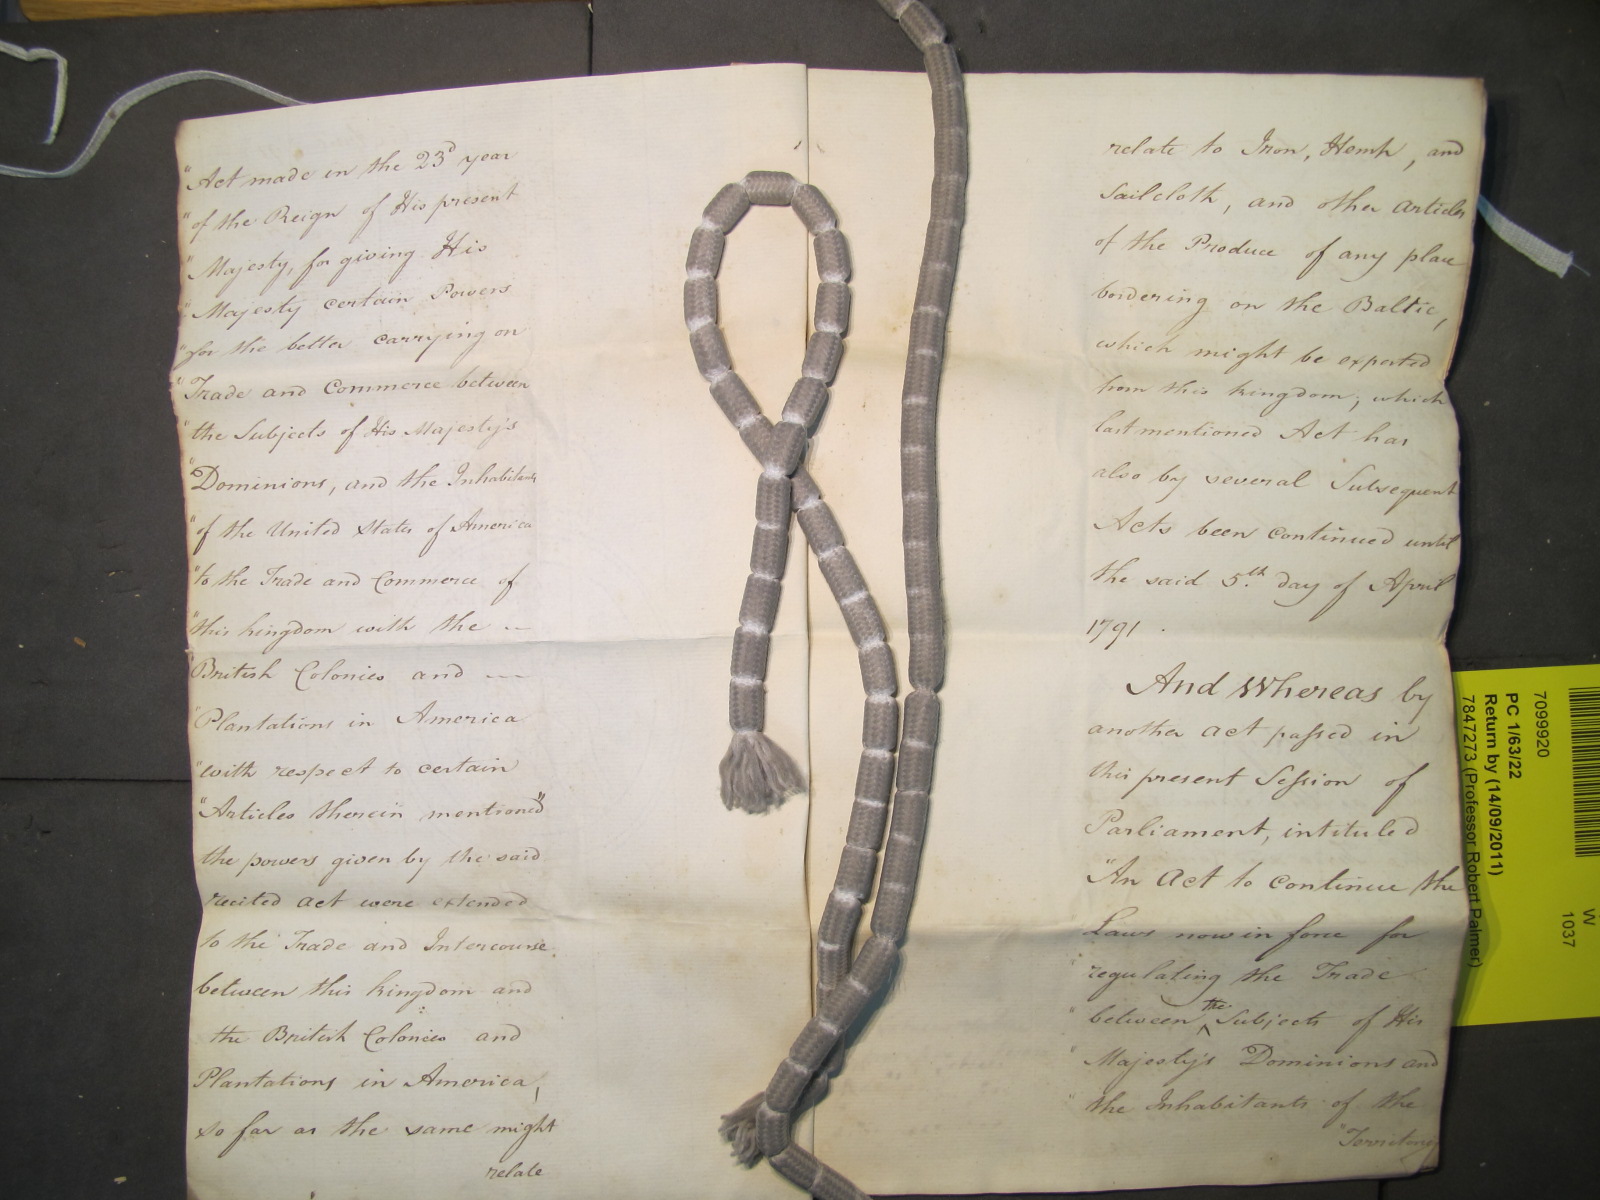 "Act made in the 23d year
"of the Reign of His present
"Majesty, for giving His
"Majesty certain Powers
"for the better carrying on
"Trade and Commerce between
"the Subjects of His Majesty's
"Dominions, and the Inhabitants
"of the United States of America
"to the Trade and Commerce of
"this kingdom with the --
"British Colonies and ---
"Plantations in America
"with respect to certain
"Articles therein mentioned"
the powers given by the said
recited act were extended
to the Trade and Intercourse
between this kingdom and
the British Colonies and
Plantations in America,
so far as the same might
relate
relate to Iron, Hemp, and
Sailcloth, and other articles
of the Produce of any place
bordering on the Baltic,
which might be exported
from this kingdom; which
last mentioned Act has
also by several Subsequent
Acts been continued until
the said 5th day of April
1791.
And Whereas by
another act passed in
this present Session of
Parliament, intituled
"An Act to continue the
Laws now in force for
"regulating the Trade
"between the Subjects of His
"Majesty's Dominions and
"the Inhabitants of the
"Territories
7099920
PC 1/63/22
Return by (14/09/2011)
7847273 (Professor Robert Palmer)
W
1037